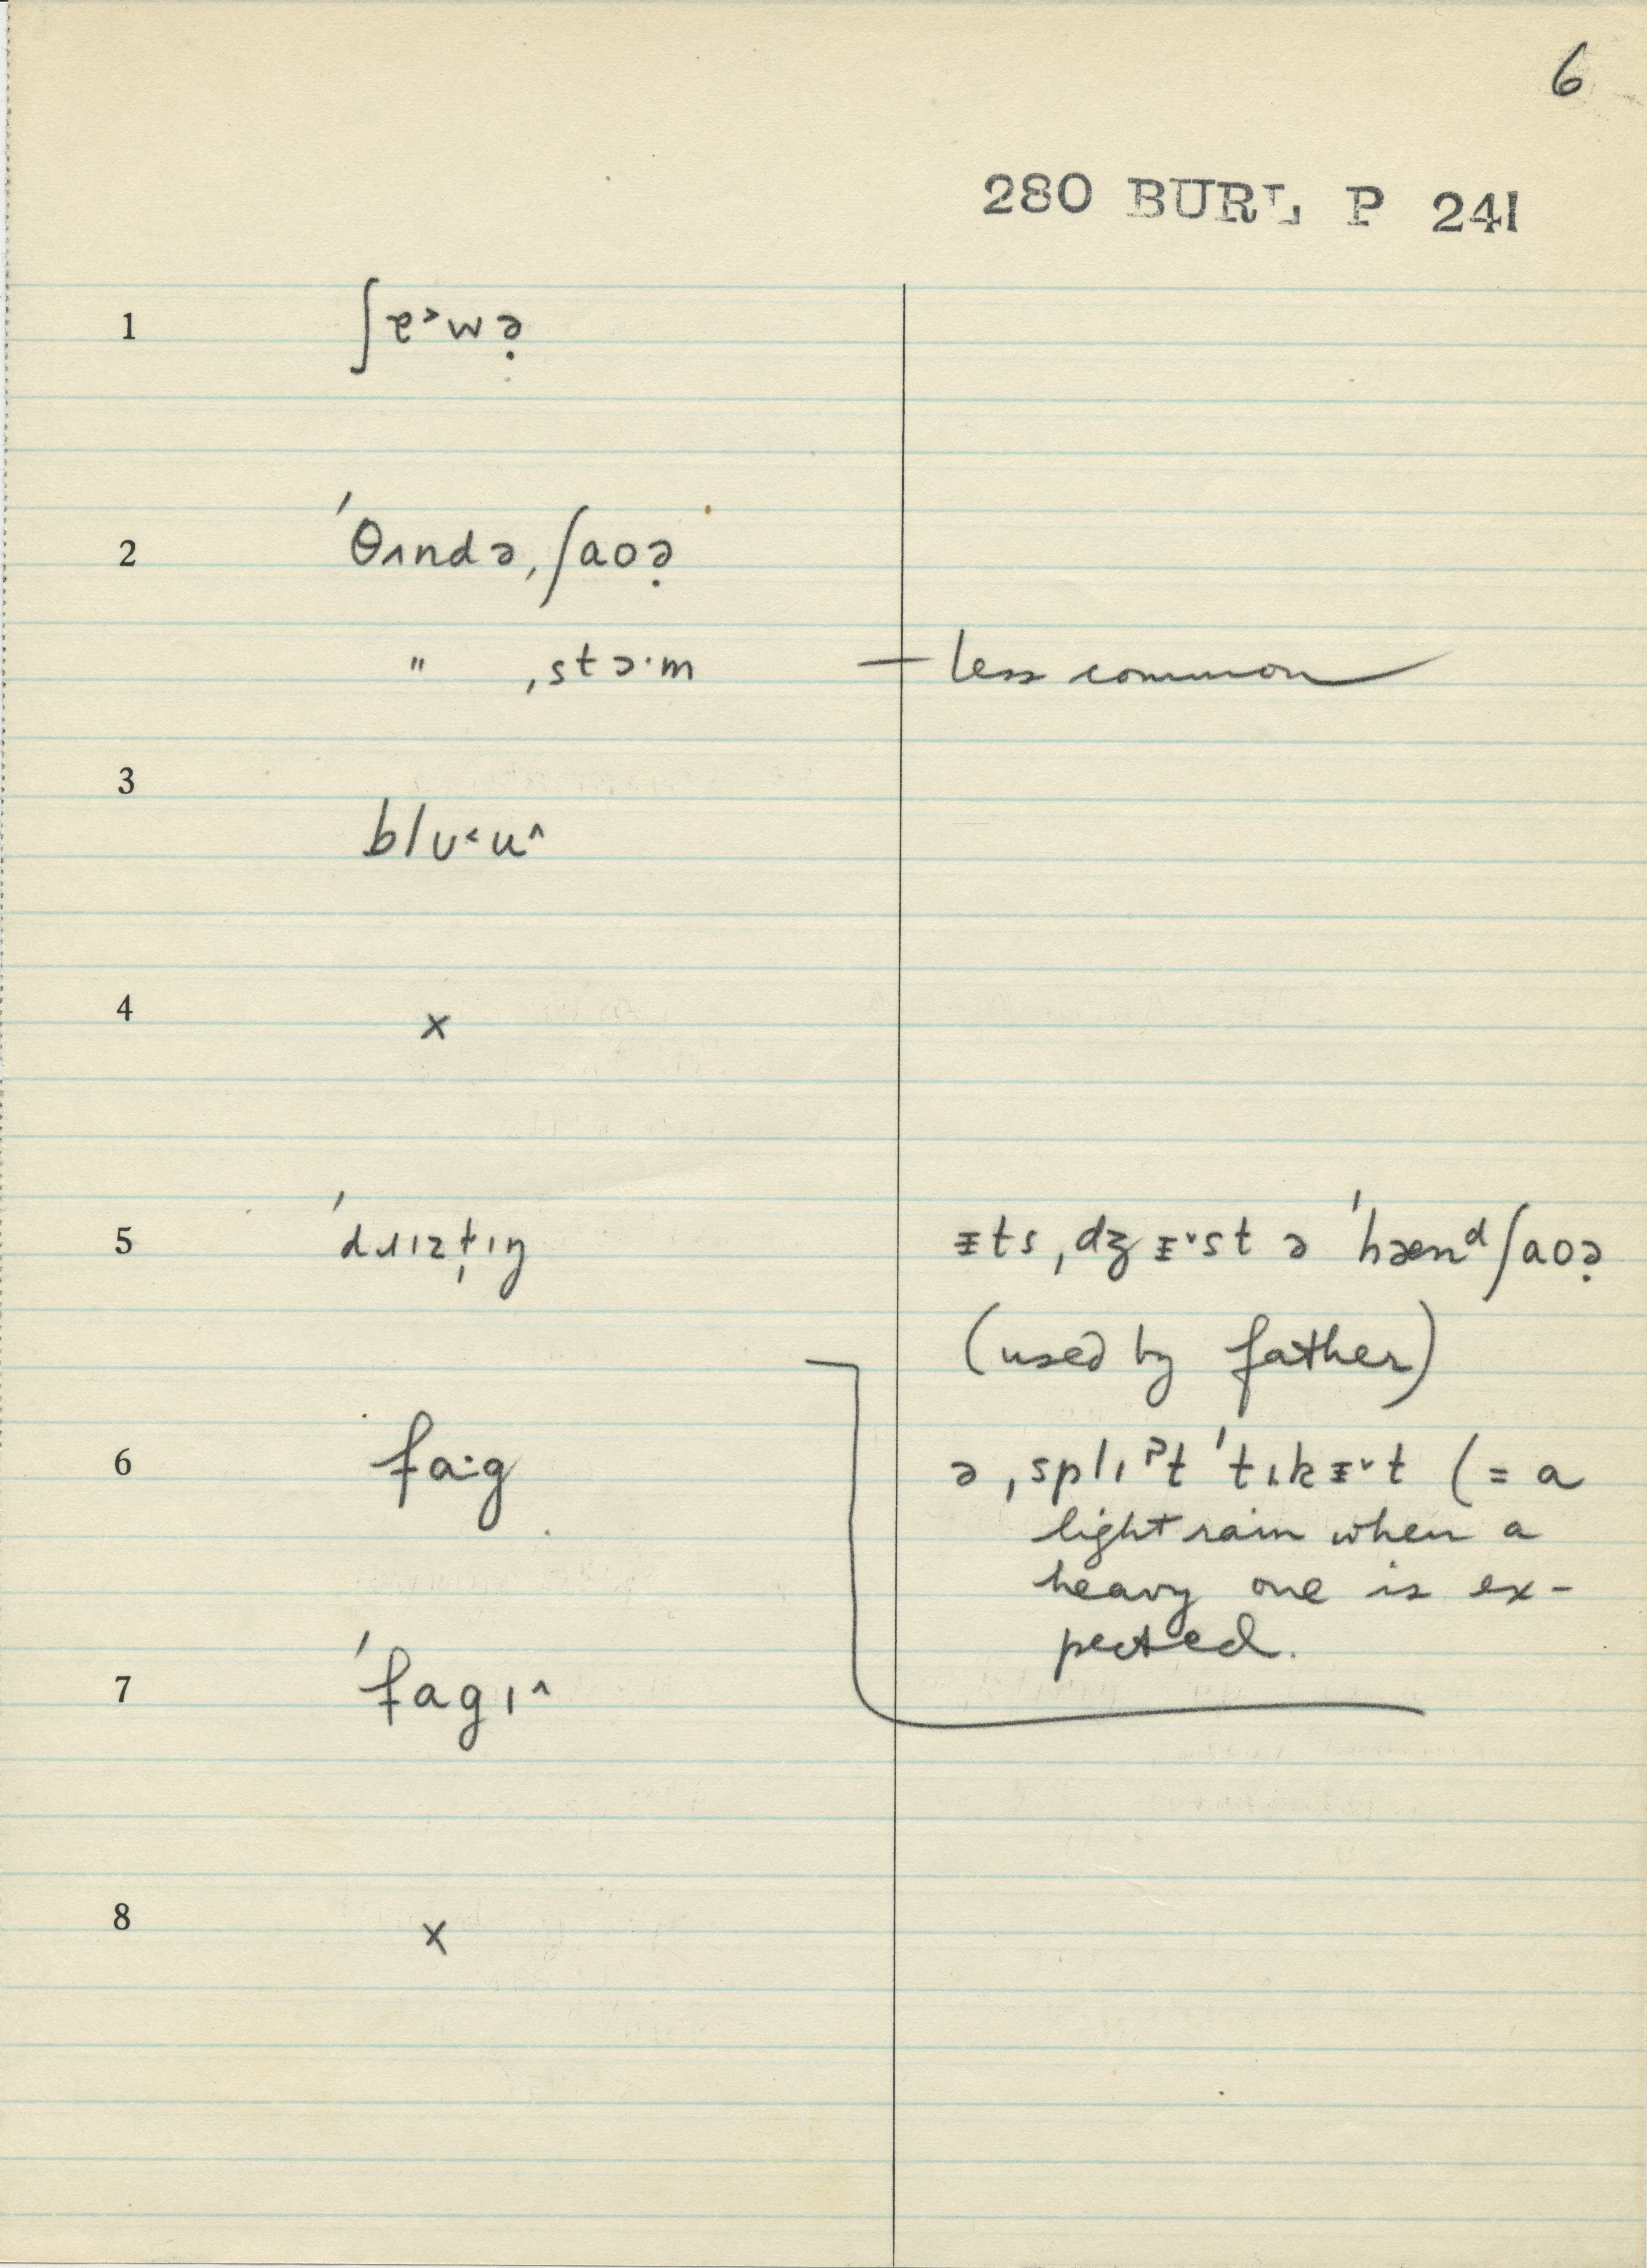 6
280 BURL P 241
1 ʃɐ˃wə̣
2 ˈθʌndə ˌʃaoə̣
" ˌstɔ·m — less common
3 blʊ˂u^
4 x
5 ˈdɹɪzt̬ɪŋ ᵻts ˌdʒᵻ˅st ə ˈhænᵈʃaoə̣
(used by father)
6 fa·g ə ˌsplɪˀt ˈtɪkᵻ˅t (= a
light rain when a
heavy one is ex-
pected.
7 ˈfagɪ^
8 x